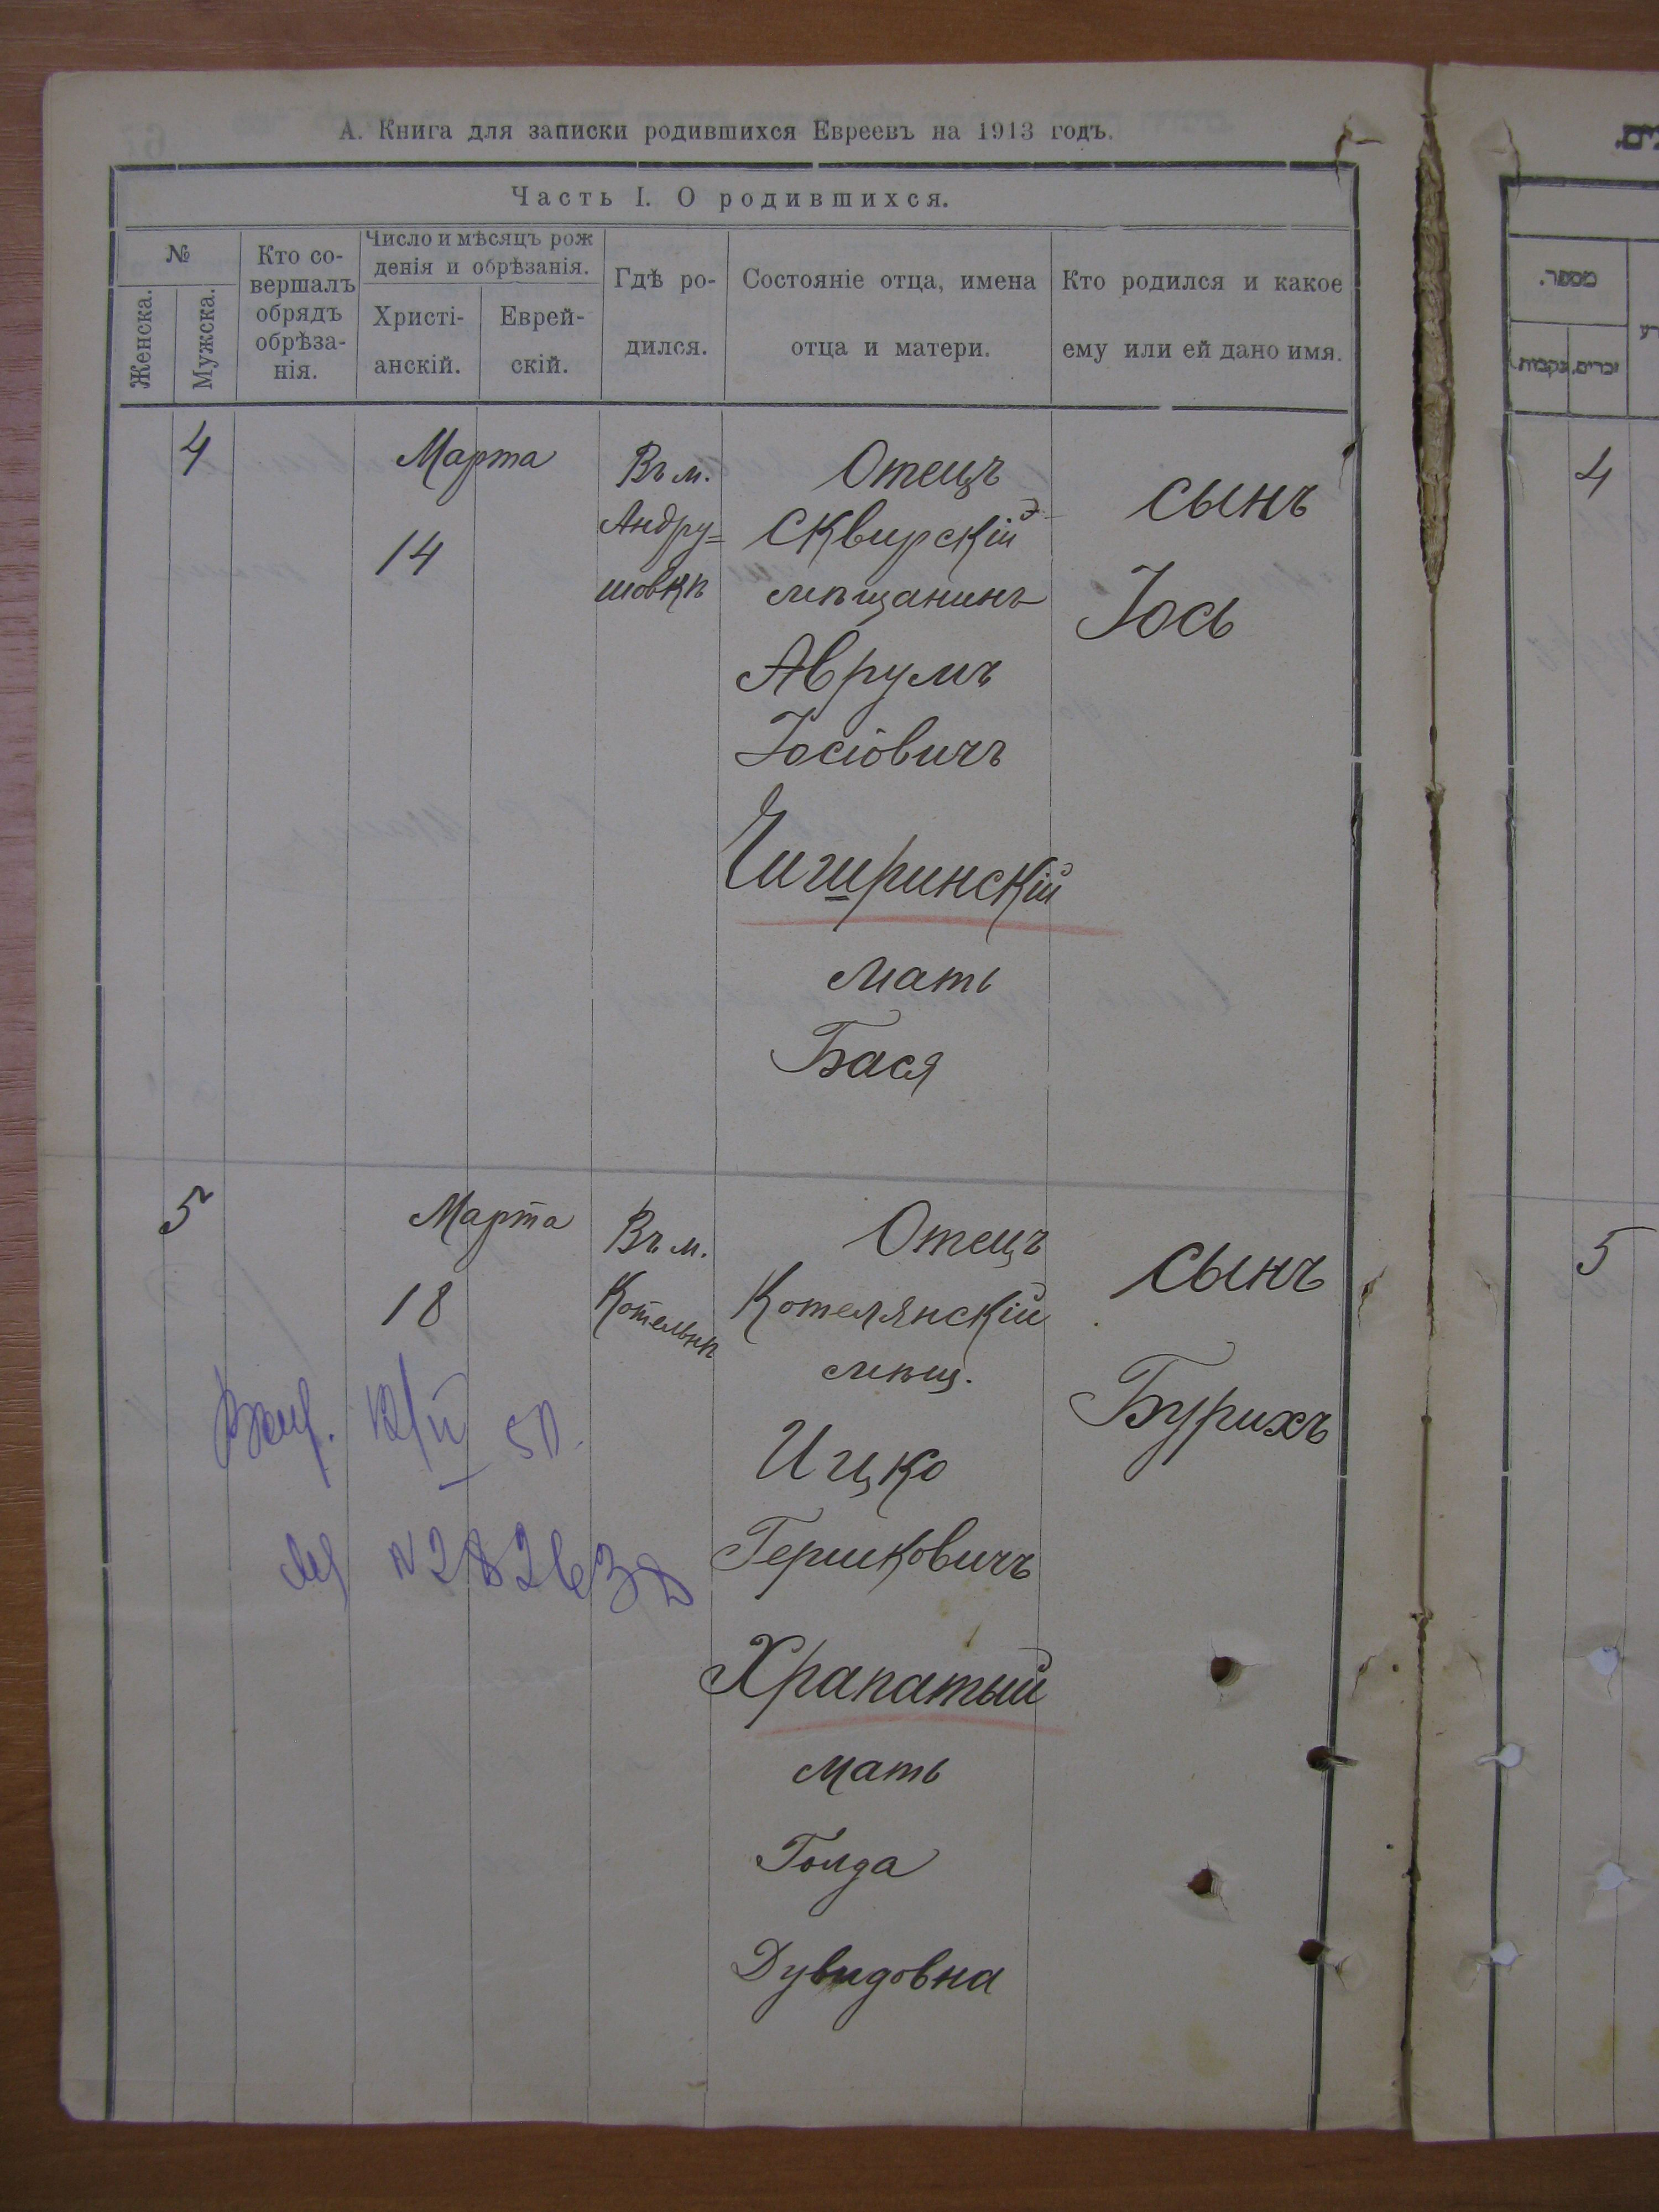 А. Книга для записки родившихся Евреевъ на 1913 годъ.
Часть I. О родившихся.
№
Женска.
Мужска.
Кто со-
вершалъ
обрядъ
обрѣза-
нія.
Число и мѣсяцъ рож
денія и обрѣзанія.
Христі-
анскій.
Еврей-
скій.
Гдѣ ро-
дился.
Состояніе отца, имена
отца и матери.
Кто родился и какое
ему или ей дано имя.
4
Марта
14
Въ м.
Андру=
шовкѣ
Отецъ
Сквирскій
мѣщанинъ
Аврумъ
Іосіовичъ
Чигиринскій
Мать
Бася
сынъ
Іось
5
Марта
18
Въ м.
Котельнѣ
Отецъ
Котелянскій
мѣщ.
Ицко
Гершковичъ
Храпатый
Мать
Голда
Дувидовна
сынъ
Бурихъ
מספר.
זכרים.
נקבות
4
5